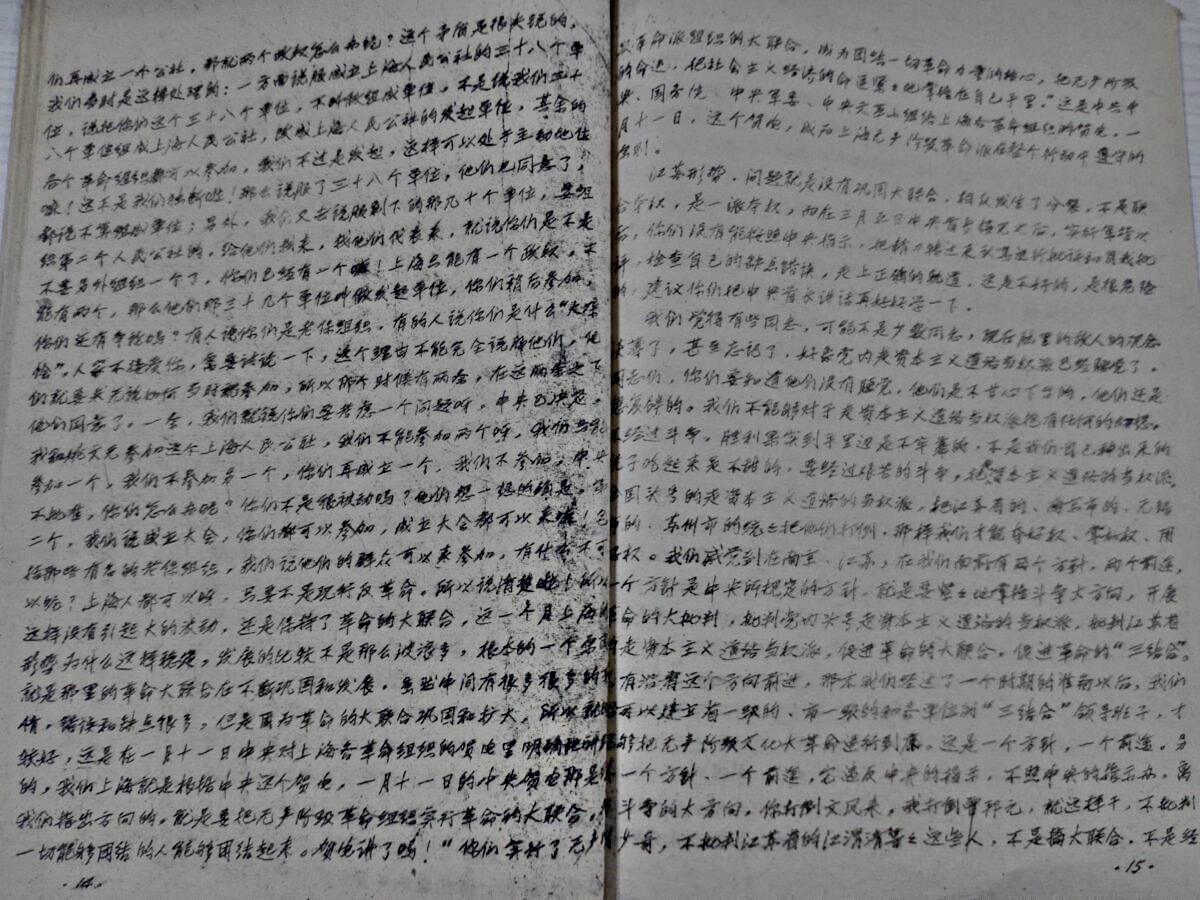 们再成立一个公社，那就两个政权怎么办呢？这个矛盾是很尖锐的，
我们当时是这样处理的：一方面说服成立上海人民公社的三十八个单
位，说把你们这个三十八个单位，不叫做组成单位，不是说我们三十
八个单位组成上海人民公社，改成上海人民公社的发起单位，其余的
各个革命组织都可以参加，我们不过是发起，这样可以处于主动地位
嘛！这不是我们垄断啦！那么说服了三十八个单位，他们也同意了，
都说不算组成单位；另外，我们又去说服剩下的那几十个单位，要组
织第二个人民公社的，给他们找来，找他们代表来，就说你们是不是
不要另外组织一个了，你们已经有一个嘛！上海只能有一个政权，不
能有两个，那么他们那三十几个单位叫做发起单位，你们稍后参加，
你们还有争论吗？有人说你们是老保组织，有的人说你们是什么
人家不接受你，需要谈谈一下，这个理由不能完全说服他们，他
们就要求无论如何当时都参加，所以那个时候有两条，在这两条之下
他们同意了。一条，我们就说你们要考虑一个问题呀，中央已决定，
我和姚文元参加这个上海人民公社，我们不能参加两个呀，我们只能
参加一个，我们不参加另一个，你们再成立一个，我们不参加，中央
不批准，你们怎么办呢？你们不是很被动吗？他们想一想的确是，第
二个，我们说成立大会，你们都可以参加，成立大会都可以来嘛！包
括那些有名的老保组织，我们说他们的群众可以来参加，有什么不可
以呢？上海人都可以呀，只要不是现行反革命。所以说
这样没有引起大的波动，还是保持了革命的大联合，这一个月上海的
形势为什么这样稳定，发展的比较不是那么波浪多，根本的一个原因
就是那里的革命大联合在不断巩固和发展。虽然中间有很多很多的
情，错误和缺点很多，但是因为革命的大联合巩固和扩大，所以就
较好，这是在一月十一日中央对上海各革命组织的贺电里明确地讲
的，我们上海就是根据中央这个贺电，一月十一日的中央贺电那是
我们指出方向的。就是要把无产阶级革命组织实行革命的大联合。
一切能够团结的人能够团结起来。贺电讲了吗！“他们实行了无产阶
·14·
级革命派组织的大联合，成为团结一切革命力量的核心，把无产阶级
的命运，把社会主义经济的命运紧紧地掌握在自己手里。”这是中共中
央、国务院、中央军委、中央文革小组给上海各革命组织的贺电。一
月十一日，这个贺电，成为上海无产阶级革命派在整个行动中遵守的
原则。
江苏形势，问题就是没有巩固大联合，相反发生了分裂，不是联
合夺权，是一派夺权，而在三月五日中央首长指见之后，实行军管以
后，你们没有能按照中央指示，把精力转过来认真进行批评和自我批
评，检查自己的缺点错误，走上正确的轨道，这是不好的，是很危险
的，建议你们把中央首长讲话再好好学一下。
我们觉得有些同志，可能不是少数同志，现在脑里的敌人的观念
淡薄了，甚至忘记了，好象党内走资本主义道路当权派已经睡觉了。
同志们，你们要知道他们没有睡觉，他们是不甘心下台的，他们还是
想复辟的。我们不能够对于走资本主义道路当权派抱有任何的幻想。
不经过斗争，胜利果实到手里边是不牢靠的，不是我们自己种出来的
桃子吃起来是不甜的，要经过艰苦的斗争，把资本主义道路的当权派，
全国头号的走资本主义道路的当权派，把江苏省的、南京市的、无锡
市的、苏州市的统统把他们打倒，那样我们才能夺好权、掌好权、用
好权。我们感觉到在南京、江苏，在我们面前有两个方针，两个前途，
一个方针是中央所规定的方针，就是要紧紧地掌握斗争大方向，开展
革命的大批判，批判党内头号走资本主义道路的当权派，批判江苏省
走资本主义道路当权派，促进革命的大联合。促进革命的“三结合”。
有沿着这个方向前进，那末我们经过了一个时期的准备以后，我们
可以建立省一级的、市一级的和各单位的“三结合”领导班子，才
能够把无产阶级文化大革命进行到底。这是一个方针，一个前途。另
一个方针、一个前途，它违反中央的指示，不照中央的指示办，离
开斗争的大方向，你打倒文凤来，我打倒曾邦元，就这样干，不批判
刘少奇，不批判江苏省的江渭清等等这些人，不是搞大联合，不是经
·15·